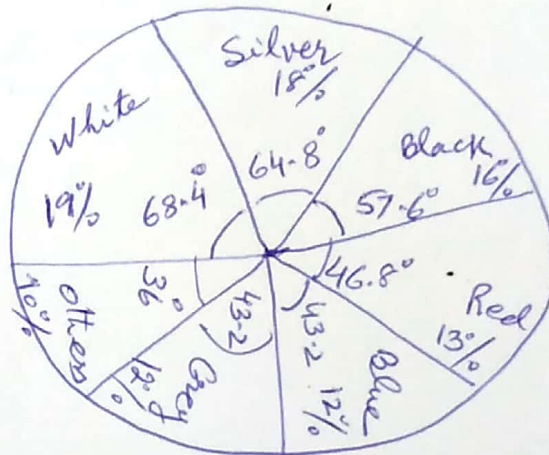 Silver
18%
64.8°
Black
16%
57.6°
Red
13%
46.8°
Blue
12%
43.2
Grey
12%
43.2
Others
10%
36°
White
19%
68.4°